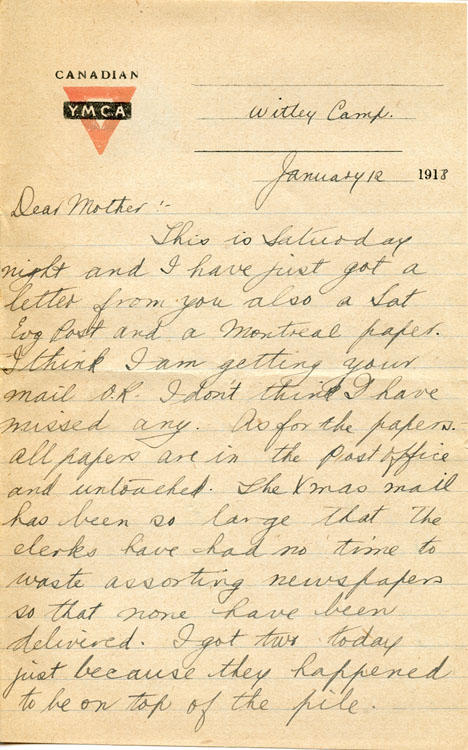 CANADIAN
YMCA
Witley Camp.
January 12 1918
Dear Mother:-
This is Saturday
night and I have just got a
letter from you also a Sat
Evg Post and a Montreal paper.
I think I am getting your
mail O.K. I don't think I have
missed any. As for the papers.-
all papers are in the Post office
and untouched. The Xmas mail
has been so large that the
clerks have had no time to
waste assorting newspapers
so that none have been
delivered. I got two today
just because they happened
to be on top of the pile.